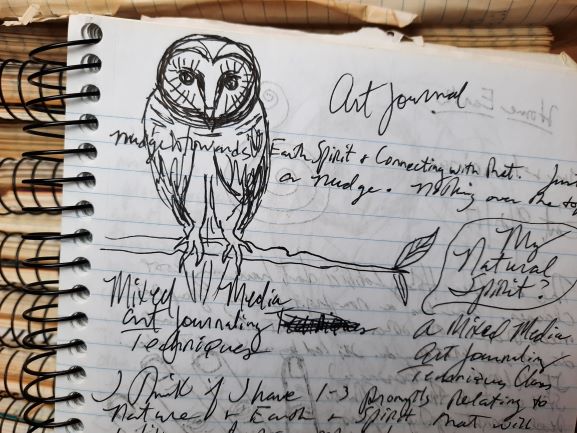 Art Journal
nudge towards Earth Spirit + Connecting with that. Just
a nudge. Nothing over the top
My
Natural
Spirit?
Mixed Media
Art Journaling
Techniques
A Mixed Media
Art Journaling
Techniques Class
I think if I have 1-3 prompts relating to
Nature + Earth + Spirit that will